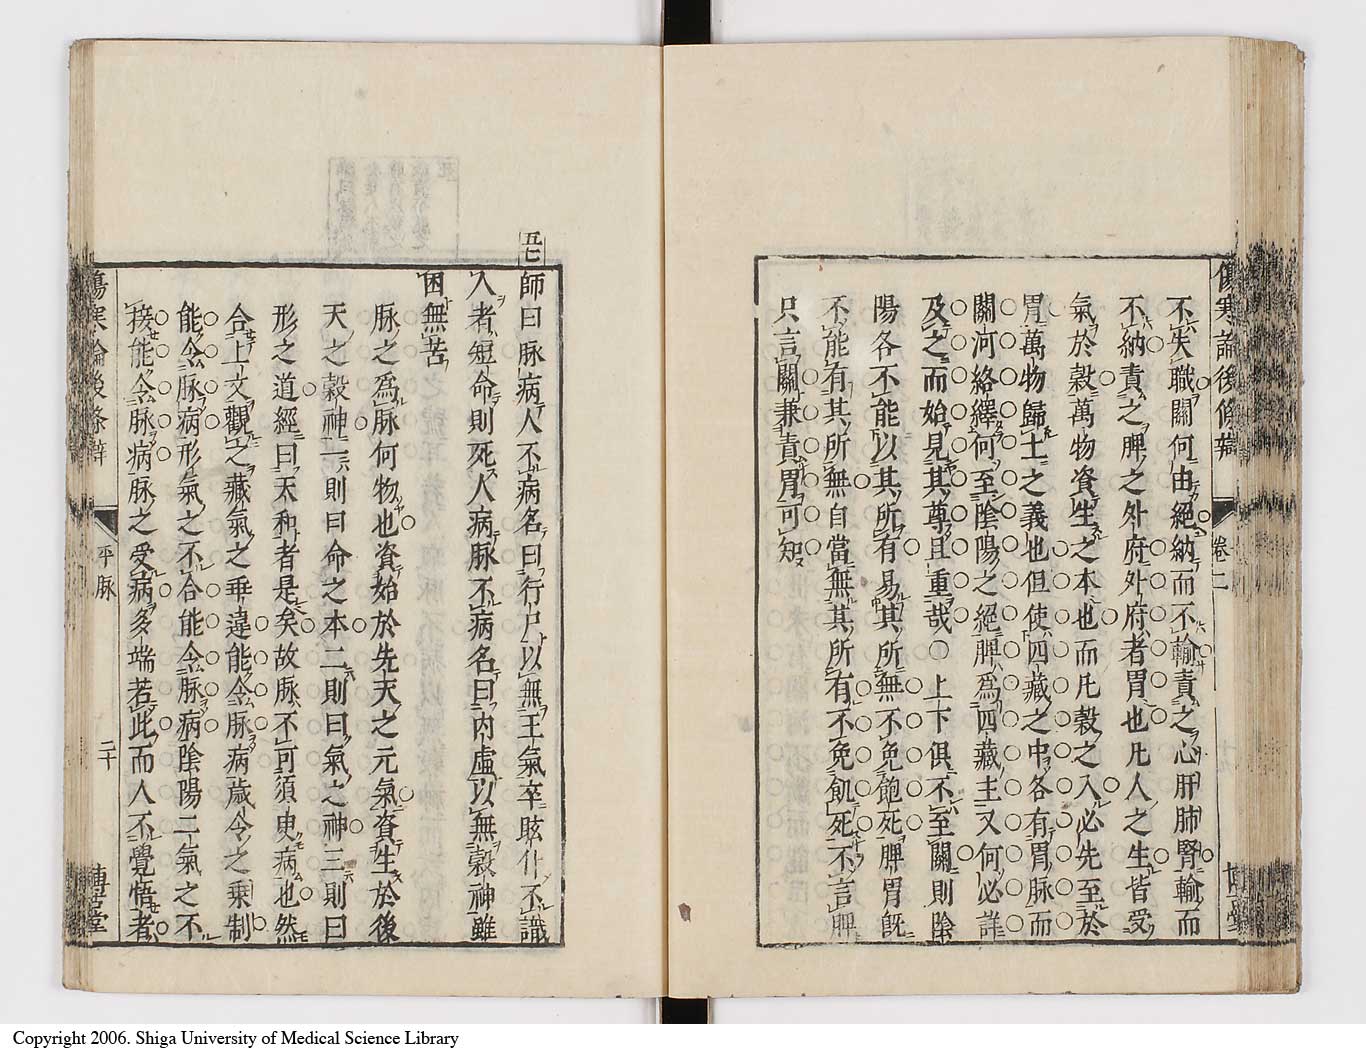 傷寒論後條辨
卷二
不失職關何由絕納而不輸責之心肝肺腎輸而
不納責之脾之外府外府者胃也凡人之生皆受
氣於穀萬物資生之本也而凡穀之入必先至於
胃萬物歸土之義也但使四藏之中各有胃脉而
關河絡繹何至陰陽之絕脾爲四藏主又何必詳
及之而始見其尊且重哉○上下俱不至關則陰
陽各不能以其所有易其所無不免飽死脾胃旣
不能有其所無自當無其所有不免飢死不言脾
只言關兼責胃可知
五二
師曰脉病人不病名曰行尸以無王氣卒眩仆不識
人者短命則死人病脉不病名曰內虛以無穀神雖
困無苦
脉之爲脉何物也資始於先天之元氣資生於後
天之穀神一則曰命之本二則曰氣之神三則曰
形之道經曰天和者是矣故脉不可須臾病也然
合上文觀之藏氣之乖違能令脉病歲令之乘制
能令脉病形氣之不合能令脉病陰陽二氣之不
接能令脉病脉之受病多端若此而人不覺悟者
傷寒論後條辨
平脉
二十
博古堂
Copyright 2006. Shiga University of Medical Science Library